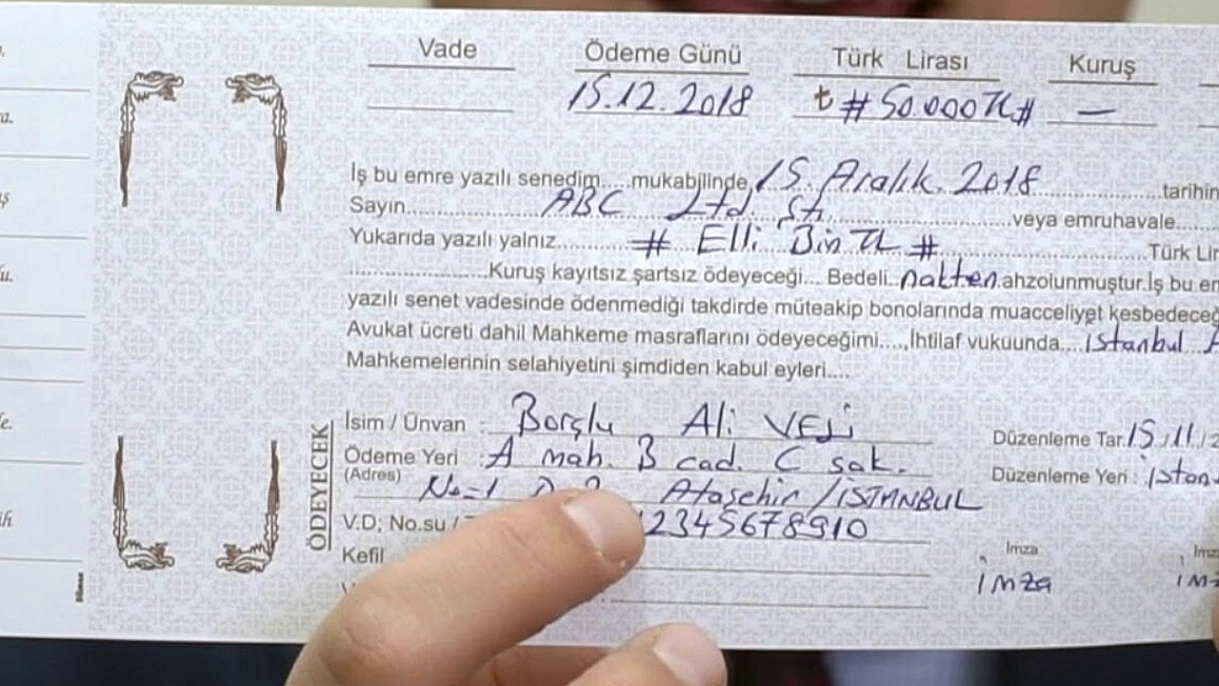 Vade Ödeme Günü Türk Lirası Kuruş
15.12.2018 ₺ #50.000TL# —
İş bu emre yazılı senedim.....mukabilinde, 15. Aralık. 2018 ..................tarihin
Sayın................ABC Ltd. Şti...................veya emruhavale.......
Yukarıda yazılı yalnız............# Elli Bin TL #..............................Türk Lir
......................Kuruş kayıtsız şartsız ödeyeceği... Bedeli..nakten.ahzolunmuştur.İş bu em
yazılı senet vadesinde ödenmediği takdirde müteakip bonolarında muacceliyet kesbedeceğ
Avukat ücreti dahil Mahkeme masraflarını ödeyeceğimi....,İhtilaf vukuunda....istanbul...A
Mahkemelerinin selahiyetini şimdiden kabul eyleri....
ÖDEYECEK
İsim / Ünvan : Borçlu Ali VELİ
Düzenleme Tar. 15/11/2
Ödeme Yeri : A mah. B cad. C sok.
Düzenleme Yeri : istan
(Adres) No=1 Ataşehir/İSTANBUL
V.D; No.su / 12345678910
Kefil
İmza
imza